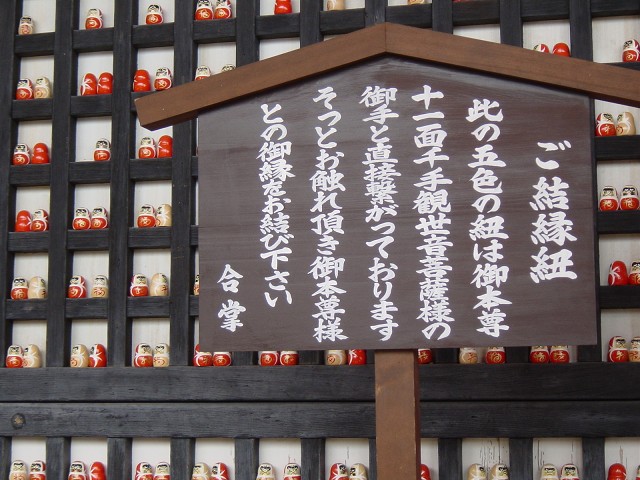 ご結縁紐
此の五色の紐は御本尊
十一面千手観世音菩薩様の
御手と直接繋がっております
そっとお触れ頂き御本尊様
との御縁をお結び下さい
合掌